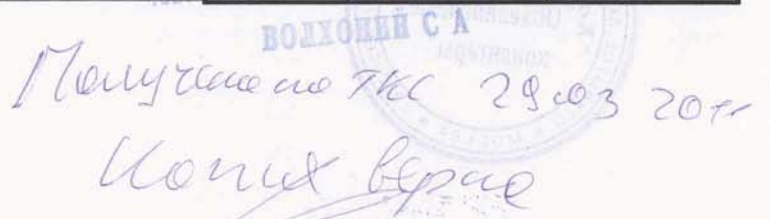 ВОЛХОНЕЙ С А
Получено по ТКС 29.03 2011
Копия верна